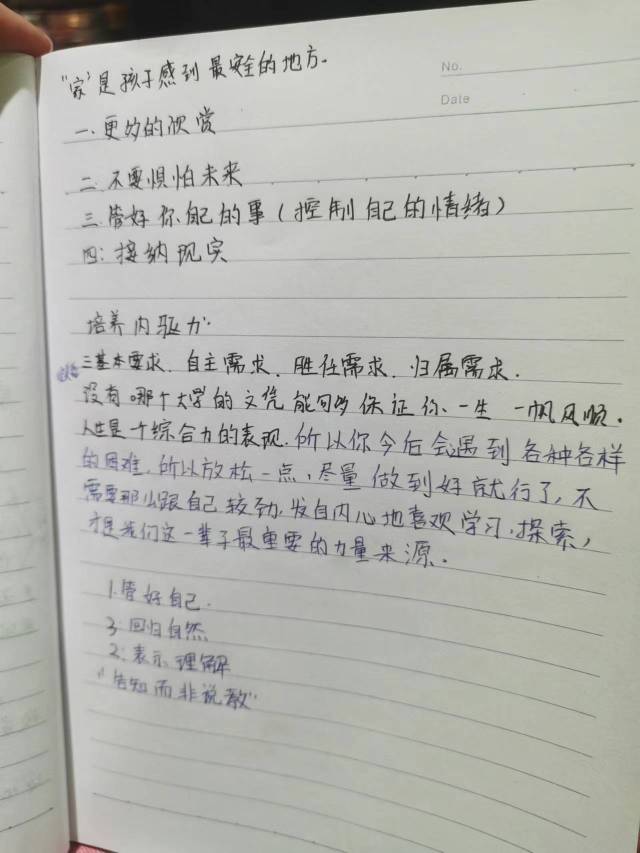 "家"是孩子感到最安全的地方.
No.
Date
一.更多的欣赏
二 不要惧怕未来
三.管好你自己的事(控制自己的情绪)
四:接纳现实
培养内驱力.
三基本要求、自主需求、胜任需求、归属需求.
没有哪个大学的文凭能够保证你一生一帆风顺.
人生是个综合力的表现.所以你今后会遇到各种各样
的困难.所以放松一点,尽量做到好就行了,不
需要那么跟自己较劲,发自内心地喜欢学习.探索,
才是我们这一辈子最重要的力量来源.
1.管好自己.
3.回归自然
2:表示理解
"告知而非说教"